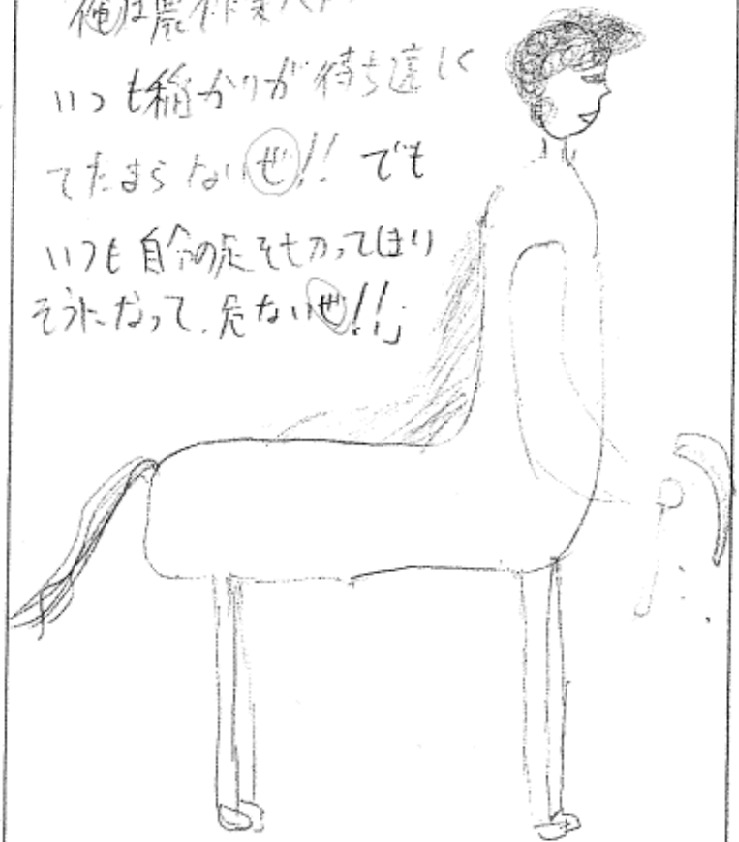 俺は農林業
いつも稲かりが待ち遠しく
てたまらないぜ!! でも
いつも自分の足を切って
そうになって、危ないぜ!!」